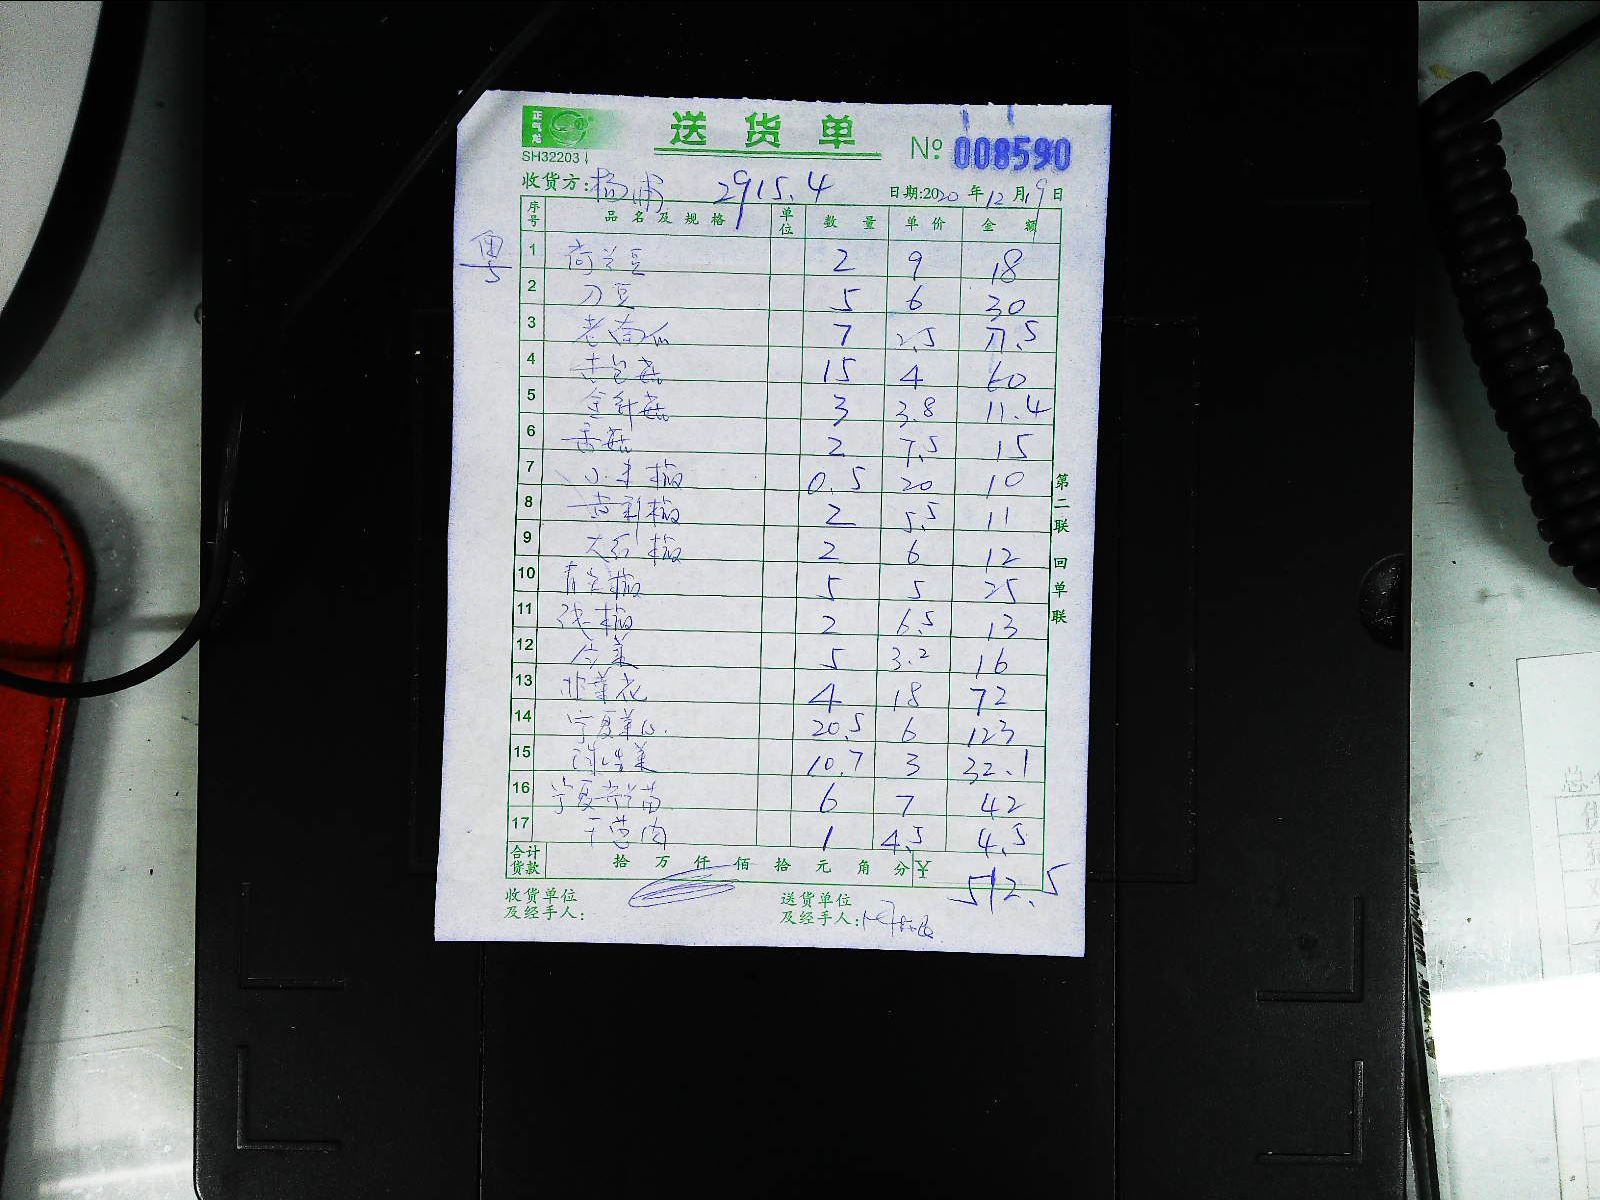 正气龙
送货单
№ 008590
SH32203
收货方:杨浦 2915.4 日期:2020年12月19日
序号 品名及规格 单位 数量 单价 金额
粤
1 荷兰豆 2 9 18
2 刀豆 5 6 30
3 老南瓜 7 2.5 17.5
4 杏包菇 15 4 60
5 金针菇 3 3.8 11.4
6 香菇 2 7.5 15
7 小米椒 0.5 20 10
8 黄彩椒 2 5.5 11
9 大红椒 2 6 12
10 青尖椒 5 5 25
11 线椒 2 6.5 13
12 5 3.2 16
13 韭菜花 4 18 72
14 宁夏菜心 20.5 6 123
15 10.7 3 32.1
16 宁夏芥兰苗 6 7 42
17 干葱肉 1 4.5 4.5
合计货款 拾 万 仟 佰 拾 元 角 分 ¥ 512.5
收货单位及经手人: 送货单位及经手人:
第二联 回单联
总